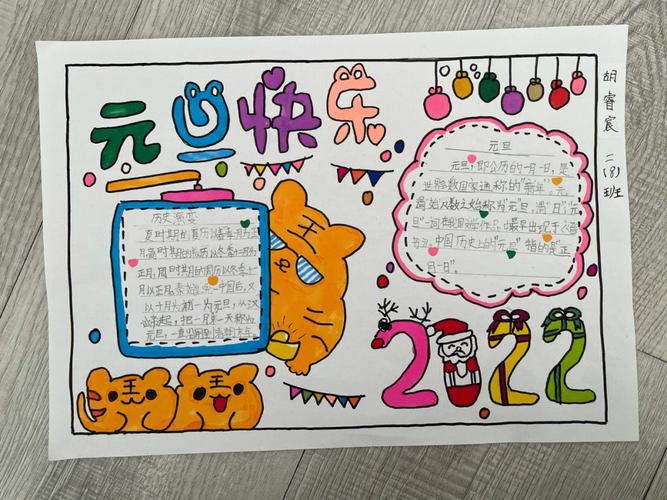 元旦快乐
胡睿宸 二(8)班
历史演变
夏时期的夏历以春季一月为正
月,商时期的殷历以冬季十二月为
正月,周时期的周历以冬季十一
月以正月。秦始皇统一中国后,又
以十月初一为元旦,从汉
起,把一月第一天称为
元旦,一直沿用到
元旦
元旦,即公历的一月一日,是
世界多数国家通称的“新年”。元,
谓“始”,凡数之始称为“元”;旦,谓“日”;“元
旦”一词最早出现于
中国历史上的“元旦”指的是“正
月一日”。
2022
王
王